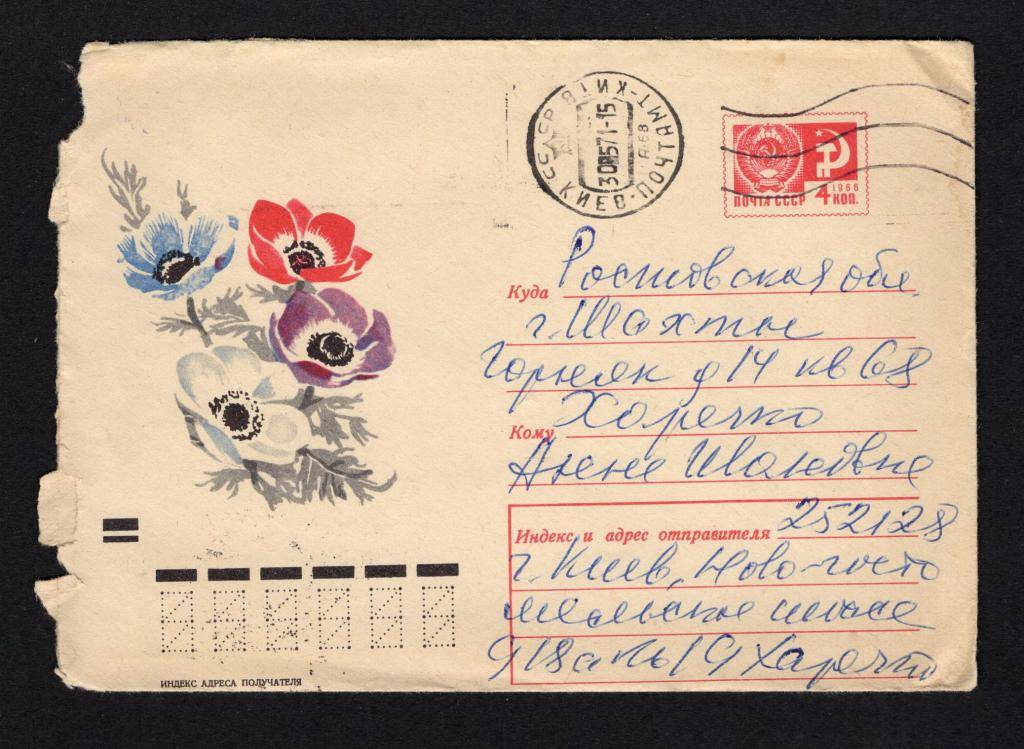 СССР КИЇВ ПОЧТАМТ-КИЇВ
КИЕВ-ПОЧТАМТ
1966
ПОЧТА СССР 4 КОП.
Куда Ростовская обл.
г. Шахты
Горняк д 14 кв 68
Кому Харечко
Анне Ивановне
Индекс и адрес отправителя 252128
г. Киев, Ново-гости
шоссе
Харечко
ИНДЕКС АДРЕСА ПОЛУЧАТЕЛЯ